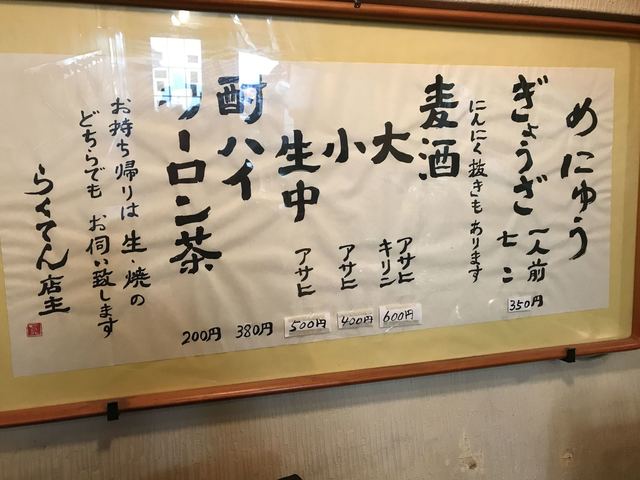 めにゅう
ぎょうざ 一人前 七こ 350円
にんにく抜きもあります
麦酒
大 アサヒ キリン 600円
小 アサヒ 400円
生中 アサヒ 500円
酎ハイ 380円
ウーロン茶 200円
お持ち帰りは 生・焼の
どちらでも お伺い致します
らくてん店主